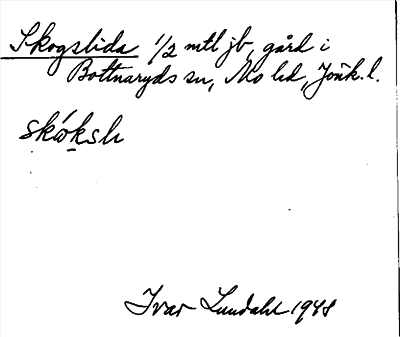 Skogslida 1/2 mtl jb, gård i
Bottnaryds sn, Mo hd, Jönk. l.
skóksli
Ivar Lundahl 1948